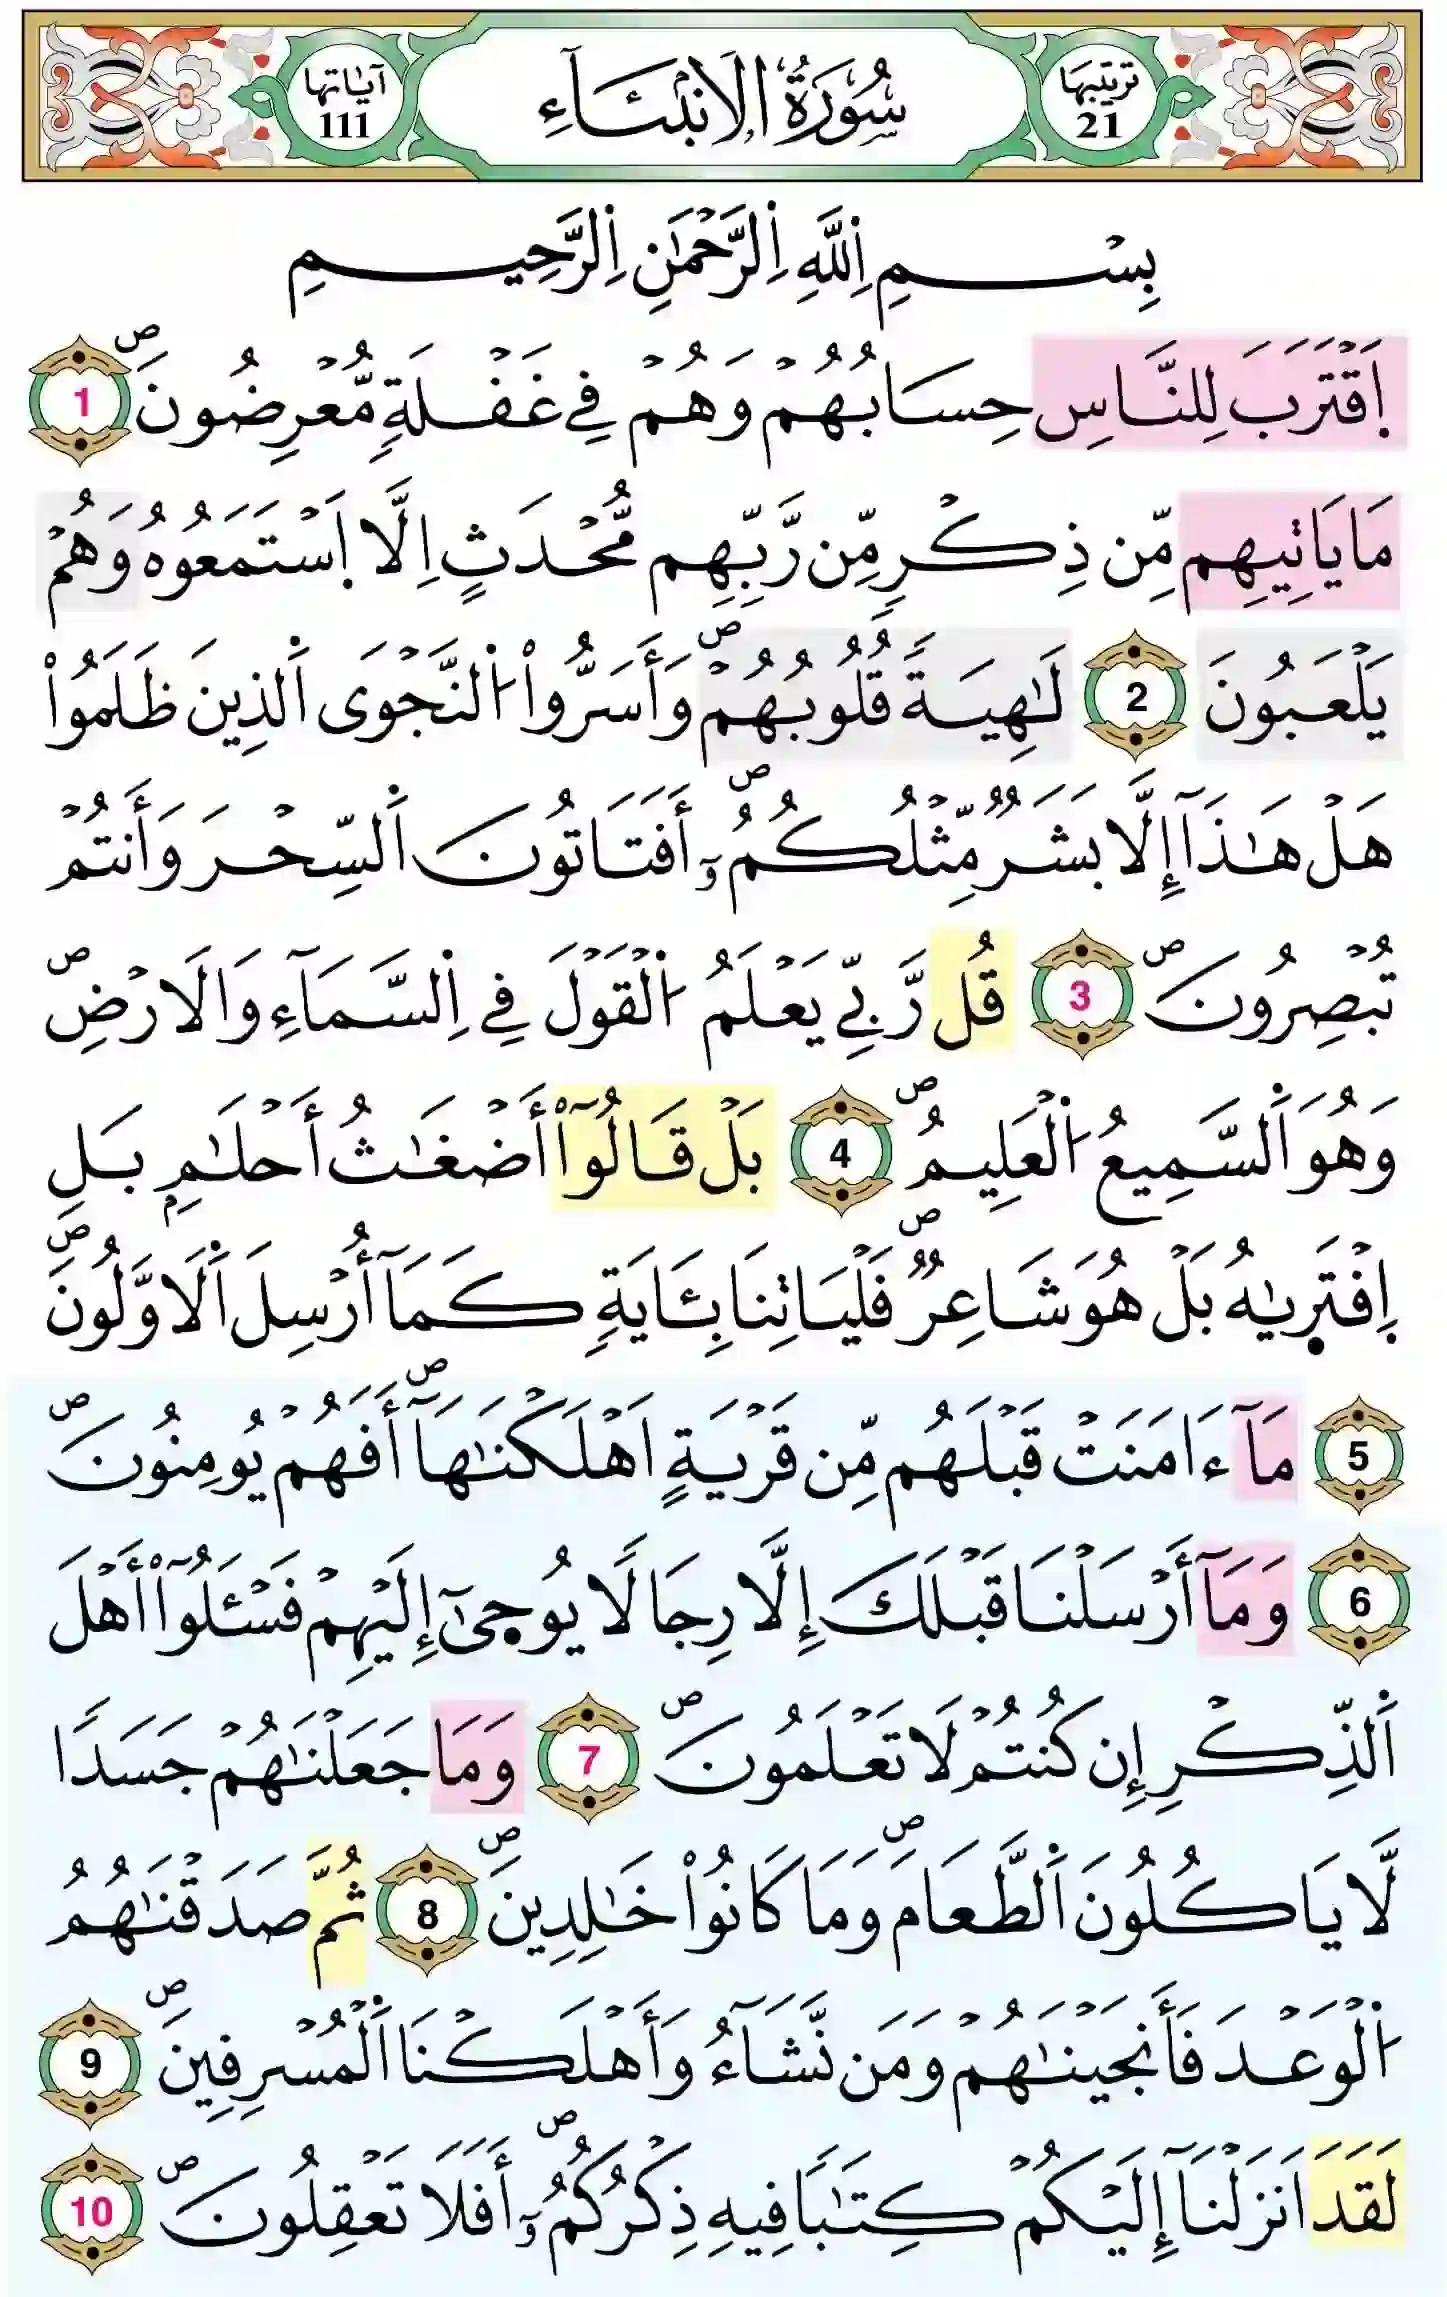 ترتيبها 21
سُورَةُ الاَنبِيَاءِ
آياتها 111
بِسْمِ اِللَّهِ اِلرَّحْمَٰنِ اِلرَّحِيمِ
اِقْتَرَبَ لِلنَّاسِ حِسَابُهُمْ وَهُمْ فِے غَفْلَةٖ مُّعْرِضُونَۖ 1
مَا يَاتِيهِم مِّن ذِكْرٖ مِّن رَّبِّهِم مُّحْدَثٍ اِلَّا اَسْتَمَعُوهُ وَهُمْ
يَلْعَبُونَ 2 لَٰهِيَةٗ قُلُوبُهُمْۖ وَأَسَرُّواْ اُلنَّجْوَى اَلذِينَ ظَلَمُواْ
هَلْ هَٰذَآ إِلَّا بَشَرٞ مِّثْلُكُمُۥٓۖ أَفَتَاتُونَ اَلسِّحْرَ وَأَنتُمْ
تُبْصِرُونَۖ 3 قُل رَّبِّے يَعْلَمُ اُلْقَوْلَ فِے اِلسَّمَآءِ وَالَارْضِۖ
وَهُوَ اَلسَّمِيعُ اُلْعَلِيمُۖ 4 بَلْ قَالُوٓاْ أَضْغَٰثُ أَحْلَٰمِۢ بَلِ
اِفْتَر۪يٰهُ بَلْ هُوَ شَاعِرٞ فَلْيَاتِنَا بِـَٔايَةٖ كَمَآ أُرْسِلَ اَلَاوَّلُونَۖ
5 مَآ ءَامَنَتْ قَبْلَهُم مِّن قَرْيَةٍ اَهْلَكْنَٰهَآۖ أَفَهُمْ يُومِنُونَۖ
6 وَمَآ أَرْسَلْنَا قَبْلَكَ إِلَّا رِجَالٗا يُوح۪يٰٓ إِلَيْهِمْ فَسْـَٔلُوٓاْ أَهْلَ
اَلذِّكْرِ إِن كُنتُمْ لَا تَعْلَمُونَۖ 7 وَمَا جَعَلْنَٰهُمْ جَسَداٗ
لَّا يَاكُلُونَ اَلطَّعَامَۖ وَمَا كَانُواْ خَٰلِدِينَۖ 8 ثُمَّ صَدَقْنَٰهُمُ
اُلْوَعْدَ فَأَنجَيْنَٰهُمْ وَمَن نَّشَآءُ وَأَهْلَكْنَا اَلْمُسْرِفِينَۖ 9
لَقَدَ اَنزَلْنَآ إِلَيْكُمْ كِتَٰباٗ فِيهِ ذِكْرُكُمُۥٓۖ أَفَلَا تَعْقِلُونَۖ 10